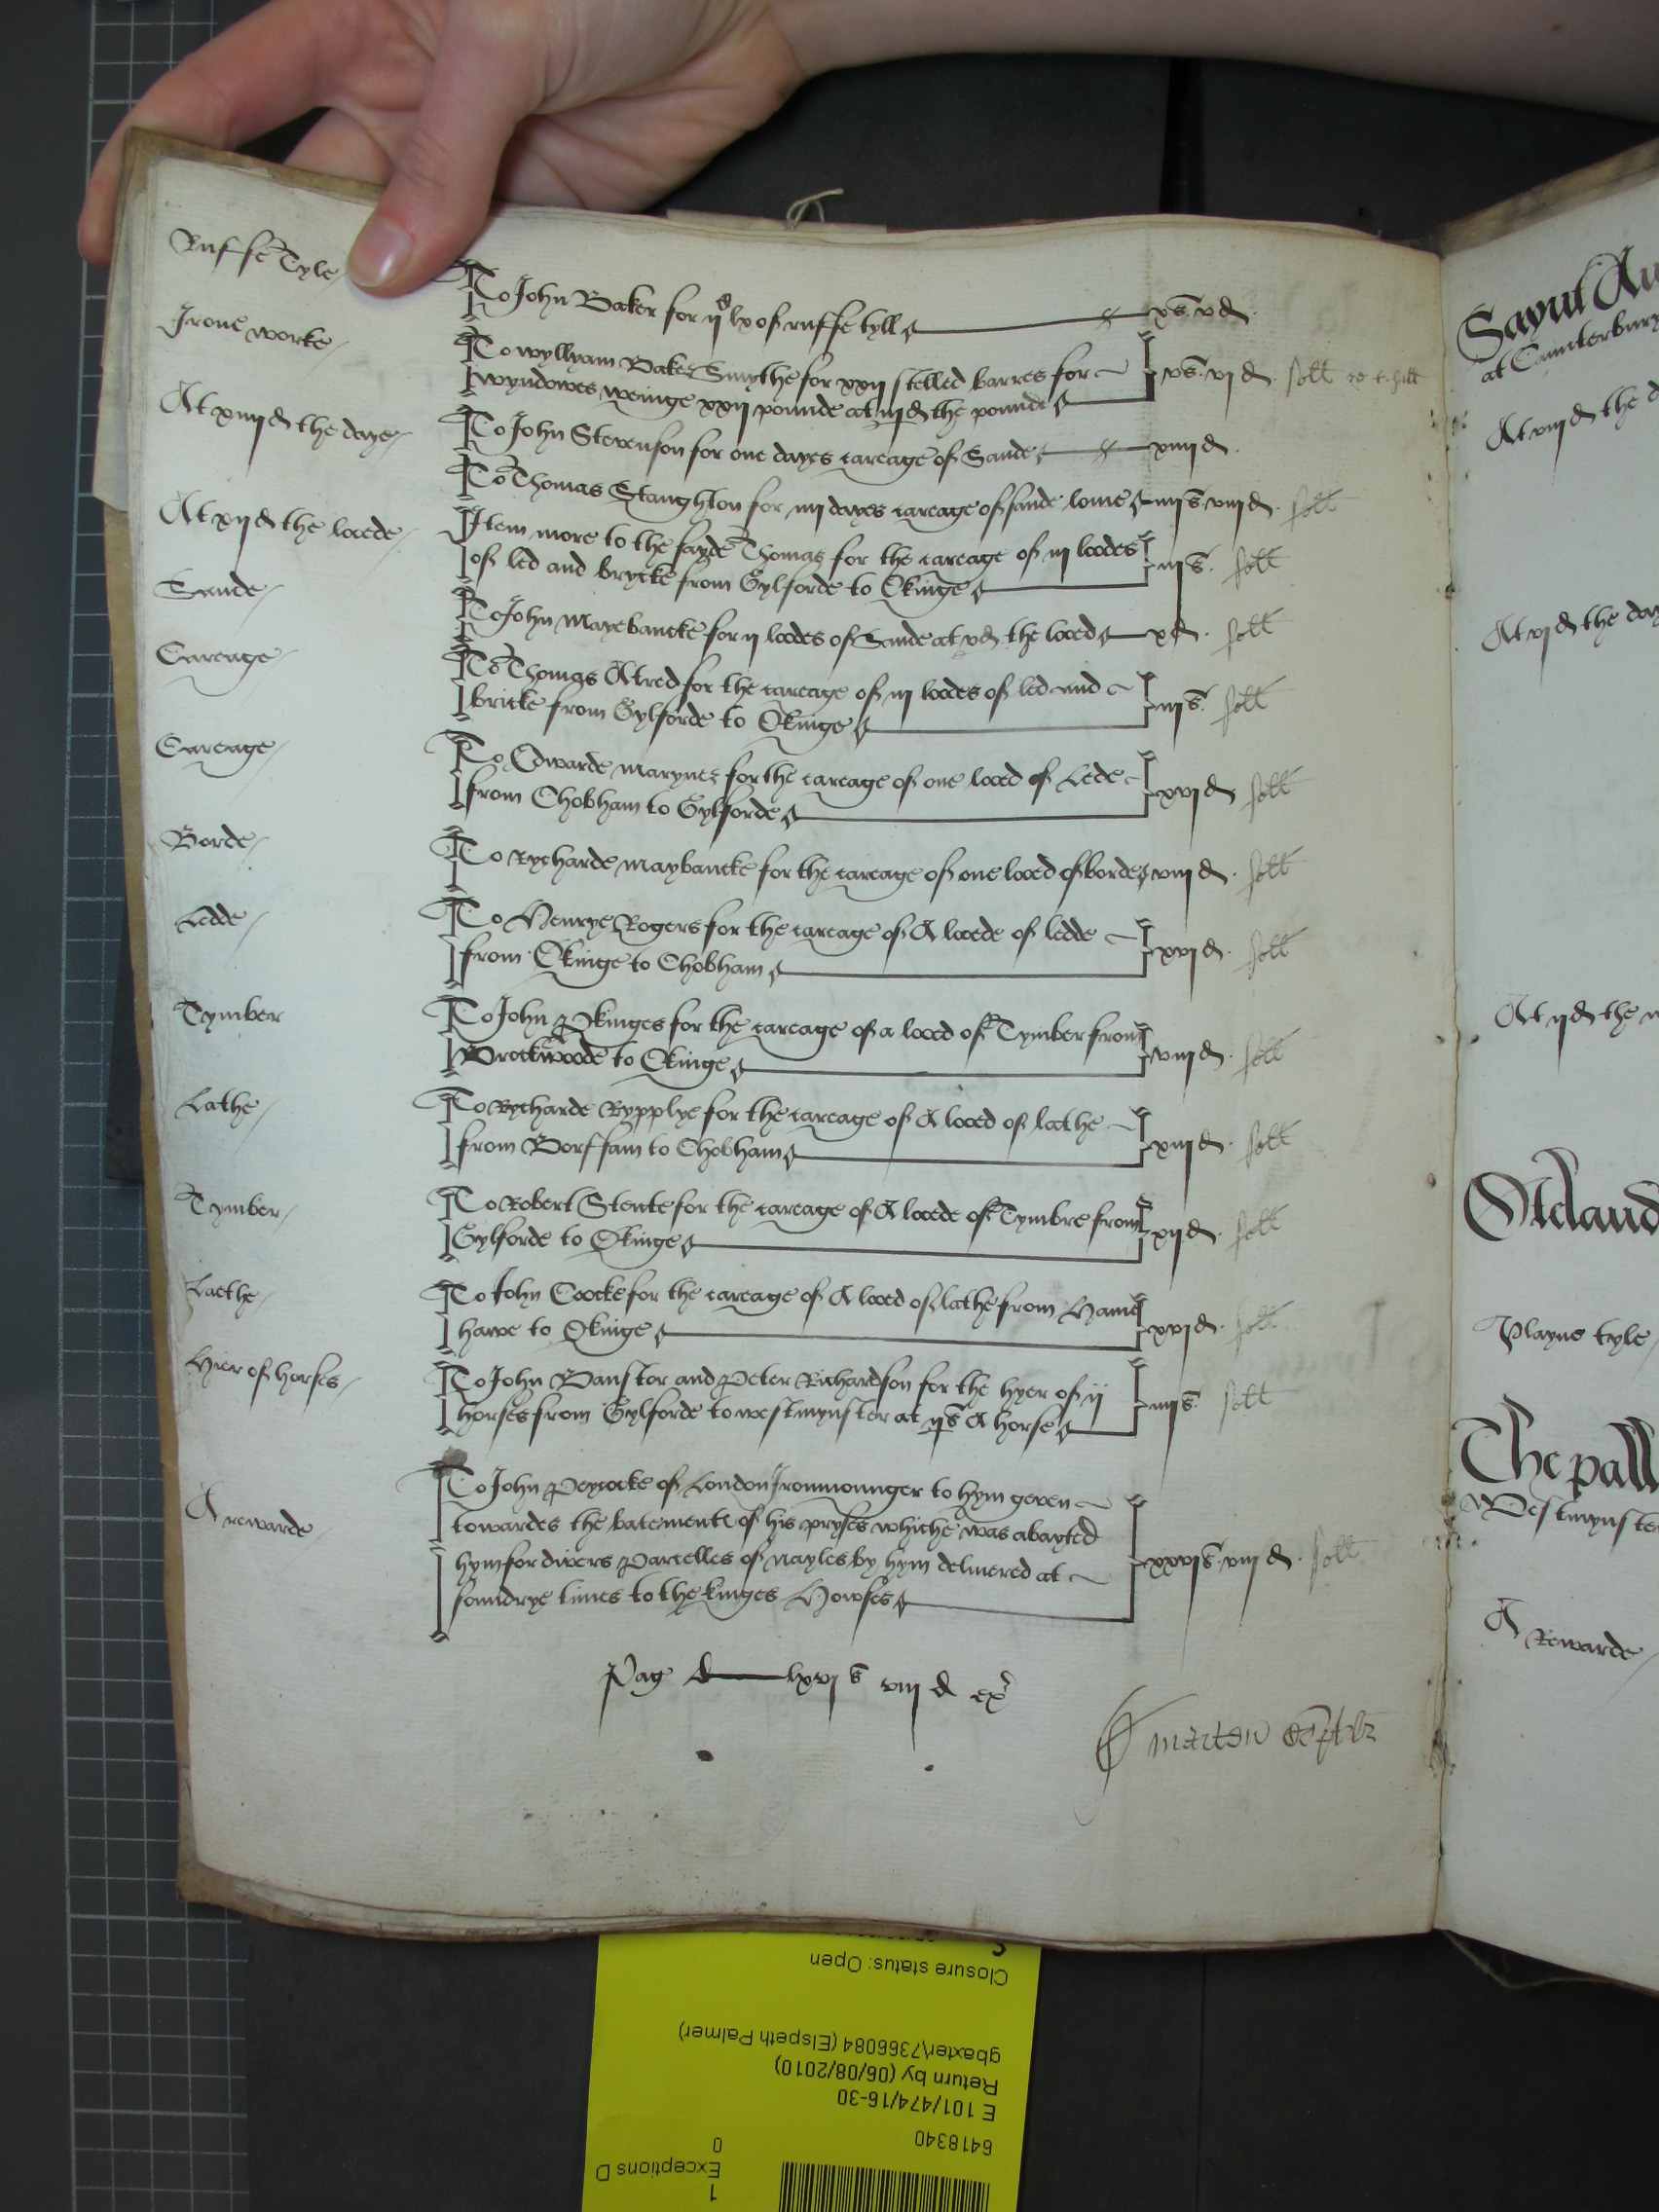 Ruffe Tyle
To John Baker for ij c lx of ruffe tyll xs vd
Irone worke
To Wyllyam Baker Smythe for xxij stelled barres for
wyndowes weinge xxij pounde at iij d the pounde vs vj d soll
At xiiij d the daye
To John Stevenson for one dayes careage of Sande xiiij d
To Thomas Staughton for iiij dayes careage of sande lome iiijs viij d soll
At xij d the loede
Item more to the sayde Thomas for the careage of iij loodes
of led and brycke from Gylforde to Okinge iijs soll
Sande
To John Mayebancke for ij loodes of Sande at vd the looed xd soll
Careage
To Thomas Atred for the careage of iij loodes of led and
bricke from Gylforde to Okinge iijs soll
Careage
To Edwarde Marynes for the careage of one looed of Lede
from Chobham to Gylforde xvj d soll
Borde
To Rycharde Maybancke for the careage of one looed of borde viij d soll
Ledde
To Henrye Rogers for the careage of A loede of ledde
from Okinge to Chobham xvj d soll
Tymber
To John Pkinges for the careage of a looed of Tymber from
Brockwoode to Okinge viij d soll
Lathe
To Rycharde Rypplye for the careage of A looed of lathe
from Borffam to Chobham xiij d soll
Tymber
To Robert Stente for the careage of A loede of Tymbre from
Gylforde to Okinge xij d soll
Lathe
To John Coocke for the careage of A looed of lathe from Hame
hawe to Okinge xvj d soll
Hier of horses
To John Banstor and Peter Richardson for the hyer of ij
horses from Gylforde to westmynster at ijs A horse iiijs soll
A rewarde
To John Peycocke of London Ironmounger to hym geven
towardes the batement of his pryses whiche was abayted
hym for divers Parcelles of nayles by hym delivered at
soundrye times to the kinges Howses xxvjs viij d soll
Pag lxvj s viij d ex
marten
Sayut Au
at Caunterbury
At viij d the d
At vj d the day
At ij d the
Otland
Playne tyle
The pall
Westmynste
A Rewarde
Closure status: Open
gbaxter\7366084 (Elspeth Palmer)
Return by (06/08/2010)
E 101/474/16-30
6418340
0
Exceptions D
1